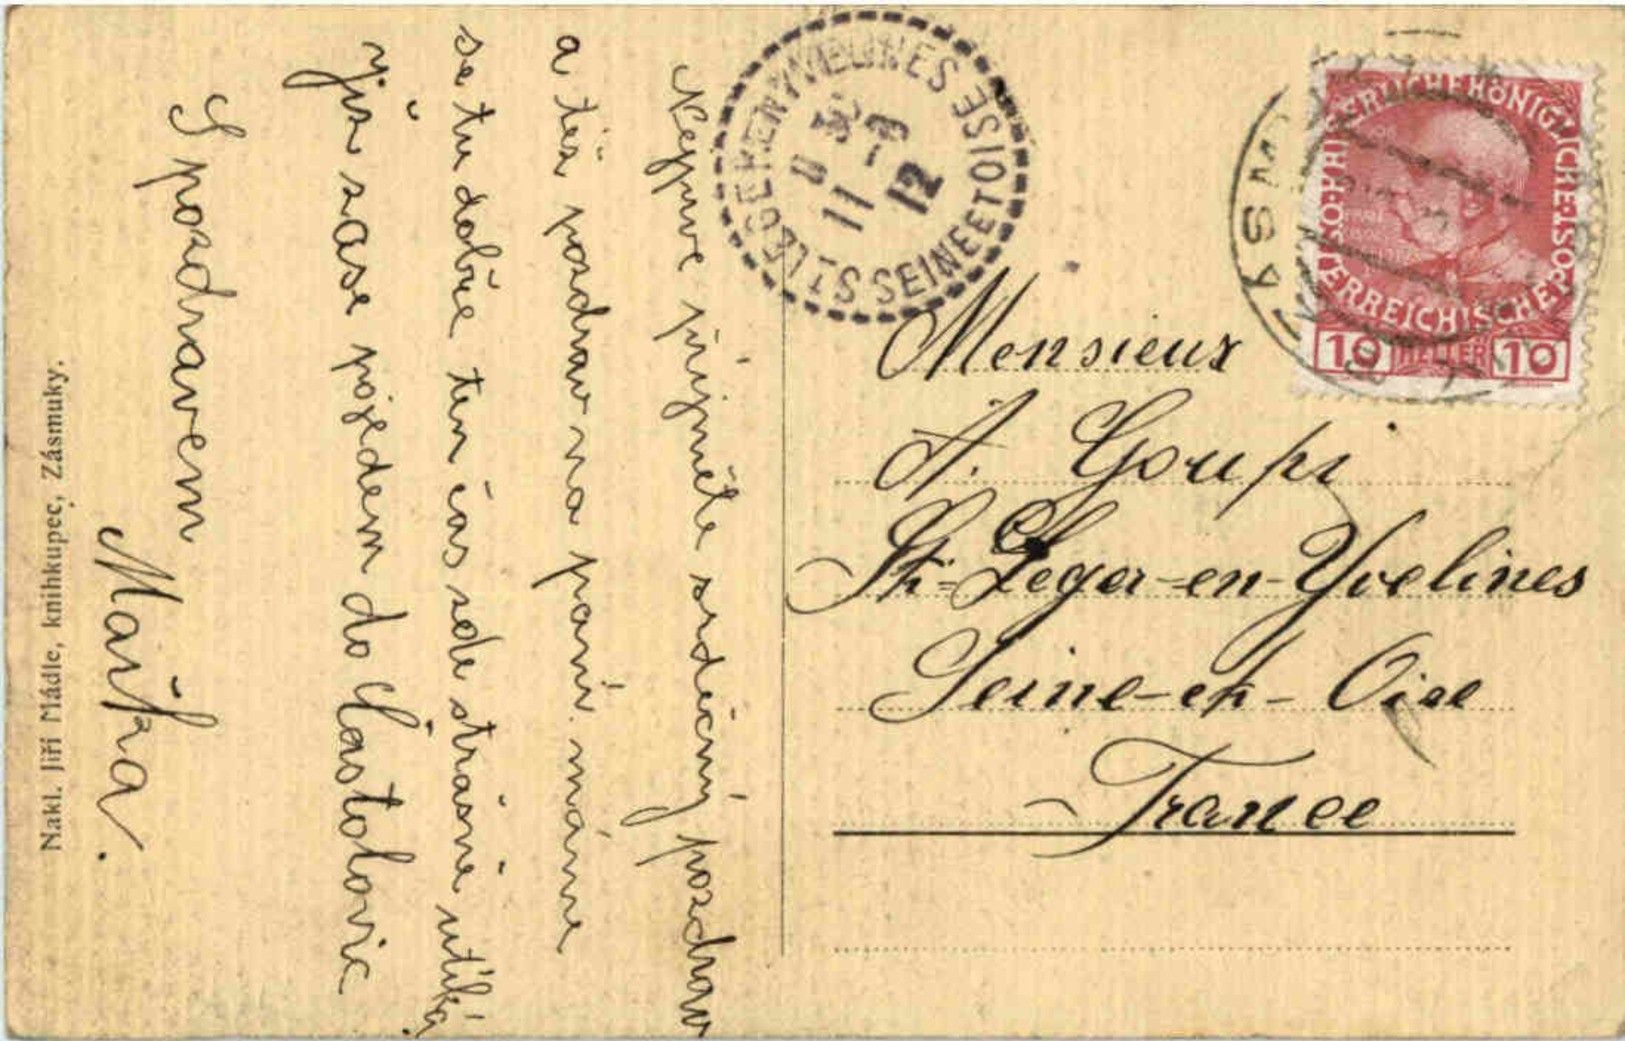 Nejprve přijměte srdečný pozdrav
a též pozdrav na paní. máme
se tu dobře ten čas zde strašně utíká,
již zase pojedem do Častolovic
S pozdravem
Mařka.
Nakl. Jiří Mádle, knihkupec, Zásmuky.
ST LEGER EN YVELINES SEINE ET OISE
11 -9
12
KAISERLICHE KÖNIGLICHE ÖSTERREICHISCHE POST
10 HELLER 10
Monsieur
A. Goupi
St-Leger-en-Yvelines
Seine-et-Oise
France